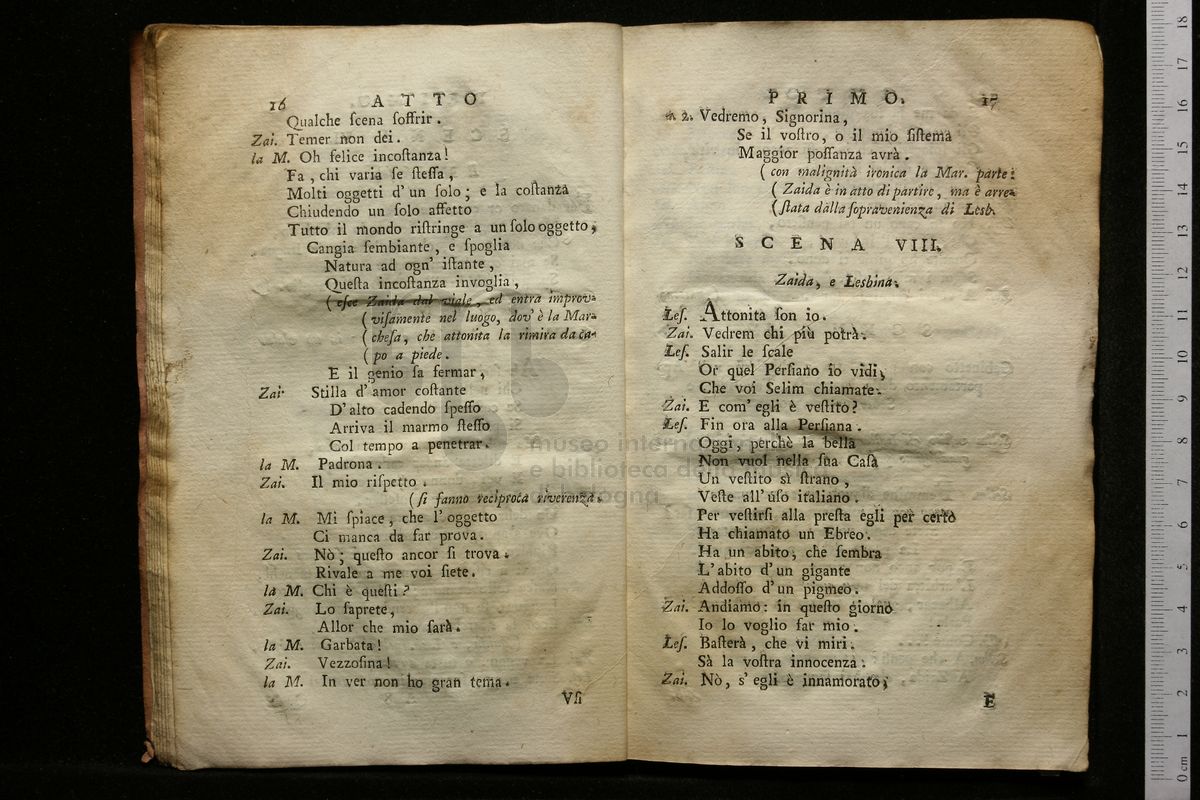 16 ATTO
Qualche ſcena ſoffrir.
Zai. Temer non dei.
la M. Oh felice incoſtanza!
Fa, chi varia ſe ſteſſa,
Molti oggetti d'un ſolo; e la coſtanza
Chiudendo un ſolo affetto
Tutto il mondo riſtringe a un ſolo oggetto,
Cangia ſembiante, e ſpoglia
Natura ad ogn' iſtante,
Queſta incoſtanza invoglia,
(eſce Zaida dal viale, ed entra improv-
(viſamente nel luogo, dov' è la Mar-
(cheſa, che attonita la rimira da ca-
(po a piede.
E il genio fa fermar,
Zai. Stilla d'amor coſtante
D'alto cadendo ſpeſſo
Arriva il marmo ſteſſo
Col tempo a penetrar.
la M. Padrona.
Zai. Il mio riſpetto.
(ſi fanno reciproca riverenza.
la M. Mi ſpiace, che l'oggetto
Ci manca da far prova.
Zai. Nò; queſto ancor ſi trova.
Rivale a me voi ſiete.
la M. Chi è queſti?
Zai. Lo ſaprete,
Allor che mio ſarà.
la M. Garbata!
Zai. Vezzoſina!
la M. In ver non ho gran tema.
Vſi
PRIMO. 17
a 2. Vedremo, Signorina,
Se il voſtro, o il mio ſiſtema
Maggior poſſanza avrà.
(con malignità ironica la Mar. parte:
(Zaida è in atto di partire, ma è arre-
(ſtata dalla ſopravenienza di Lesb.
SCENA VIII.
Zaida, e Lesbina.
Leſ. Attonita ſon io.
Zai. Vedrem chi più potrà.
Leſ. Salir le ſcale
Or quel Perſiano io vidi,
Che voi Selim chiamate.
Zai. E com' egli è veſtito?
Leſ. Fin ora alla Perſiana.
Oggi, perchè la bella
Non vuol nella ſua Caſa
Un veſtito sì ſtrano,
Veſte all' uſo italiano.
Per veſtirſi alla preſta egli per certo
Ha chiamato un Ebreo.
Ha un abito, che ſembra
L'abito d'un gigante
Addoſſo d'un pigmeo.
Zai. Andiamo: in queſto giorno
Io lo voglio far mio.
Leſ. Baſterà, che vi miri.
Sà la voſtra innocenza.
Zai. Nò, s'egli è innamorato,
E